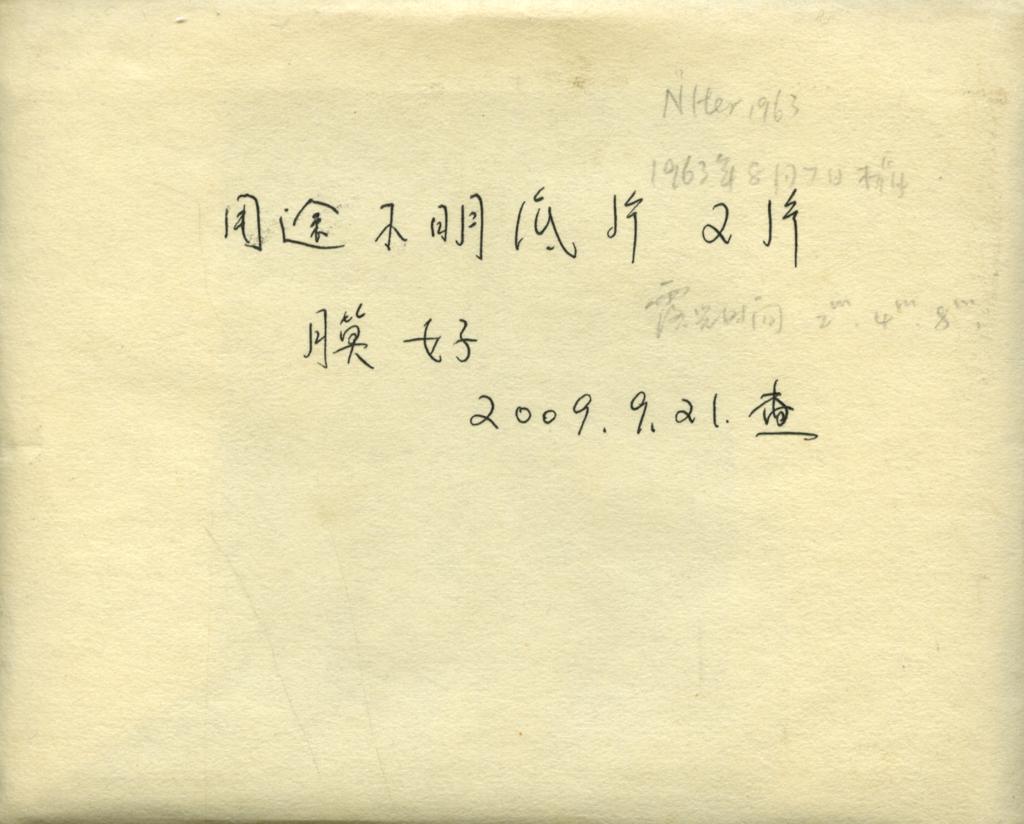 NHer 1963
1963年8月7日
用途不明底片 2片
露光时间 2ᵐ. 4ᵐ. 8ᵐ.
膜好
2009.9.21.查